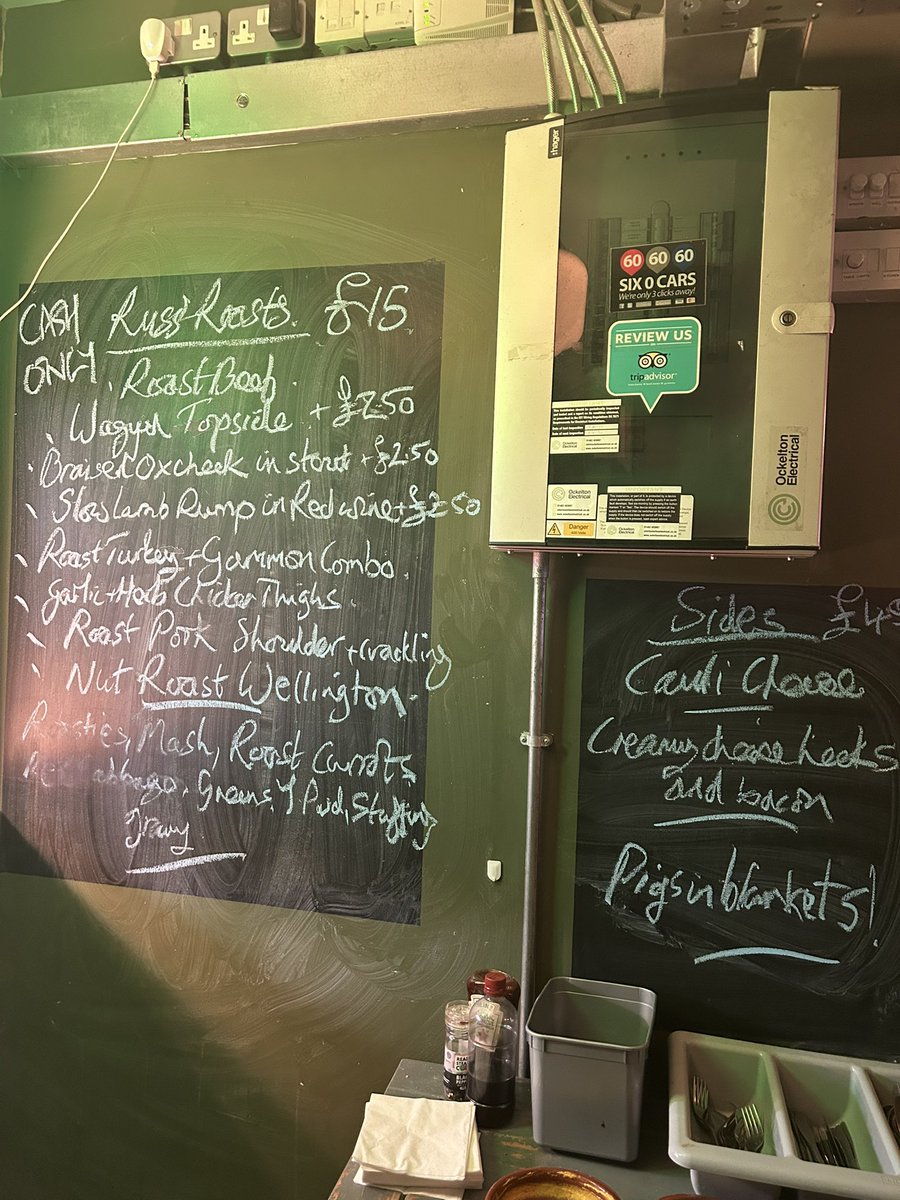 CASH ONLY. Russ' Roasts. £15
· Roast Beef.
· Wagyu Topside + £2.50
· Braised Oxcheek in stout + £2.50
· Slow Lamb Rump in Red wine + £2.50
· Roast Turkey + Gammon Combo.
· Garlic + Herb Chicken Thighs.
· Roast Pork Shoulder + crackling
· Nut Roast Wellington.
Roasties, Mash, Roast Carrots
Red Cabbage, Greens, Y Pud, Stuffing
gravy
:hager
60 60 60
SIX 0 CARS
We're only 3 clicks away!
REVIEW US
ON
tripadvisor
Ockelton Electrical
Ockelton
Electrical
Danger
400 Volts
Ockelton Electrical
Sides
Cauli Cheese
Creamy cheese leeks
and bacon
Pigs in blankets!